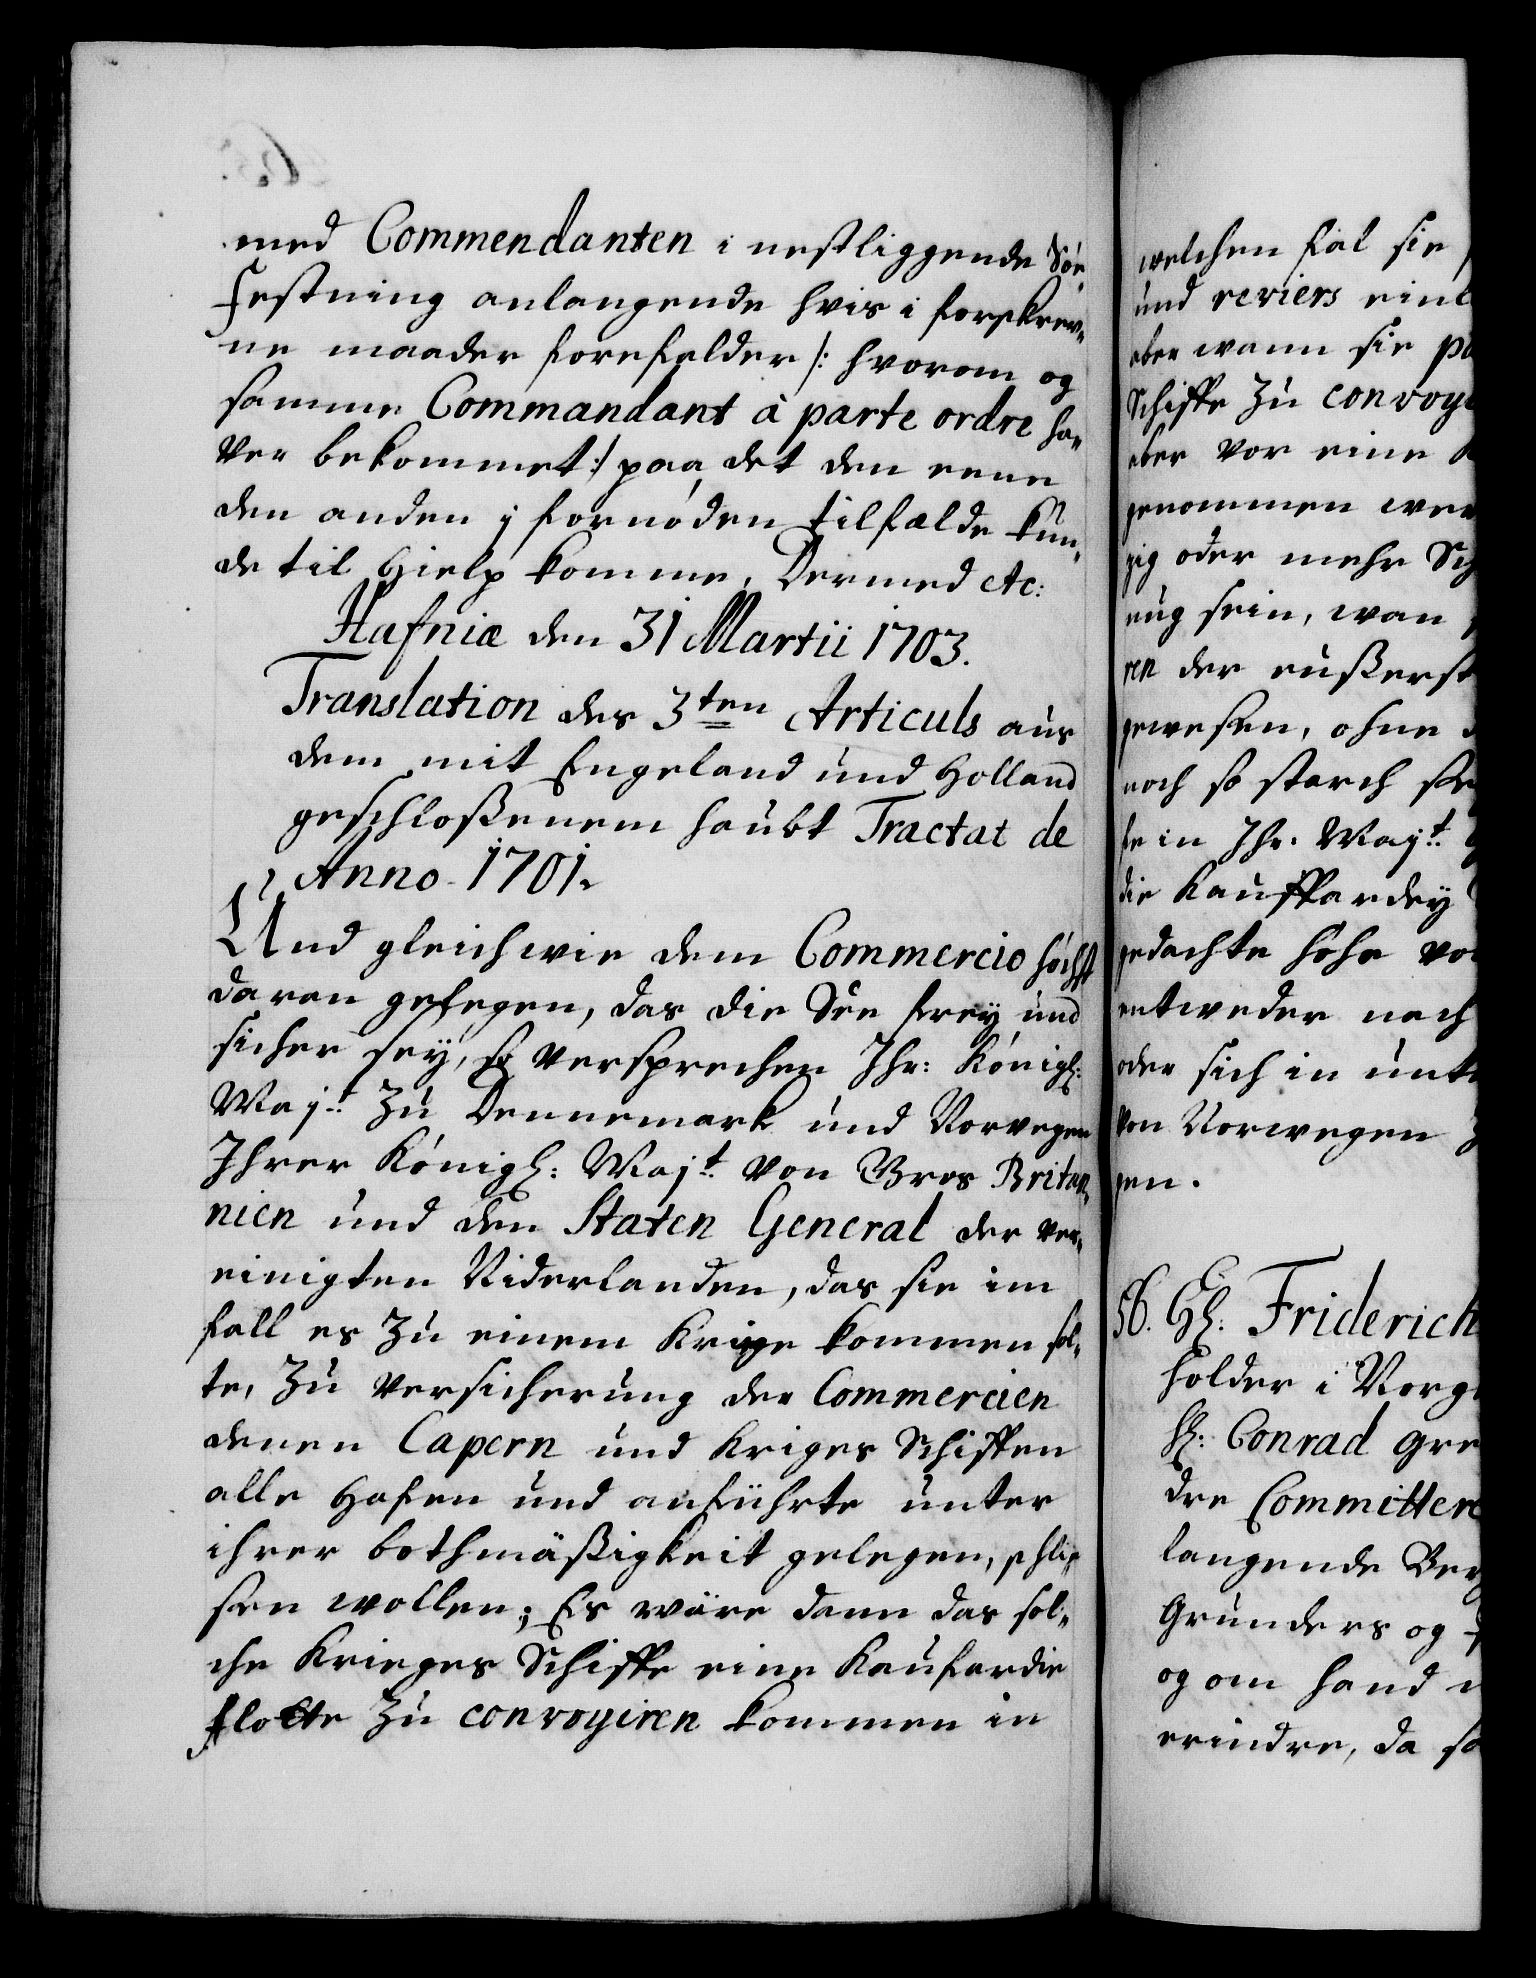 med Commendanten i nestliggende Søe
Festning anlangende hvis i forskrev„
ne maader forefalder /: hvorom og
samme Commandant à parte ordre ha„
ver bekommet :/ paa det den eene
den anden j fornøden tilfælde kun„
de til Hielp komme, Dermed etc:
Hafniæ den 31 Martii 1703.
Translation des 3ten Articuls aus
dem mit Engeland und Holland
geschloßenem haubt Tractat de
Anno 1701.
Und gleichwie dem Commercio höchst
daran gelegen, das die See frey und
sicher sey, so versprechen Ihr: Königl:
Mayt. Zu Dennemark und Norwegen
Ihrer Königl: Mayt. von Gros Britan„
nien und den Staten General der ver„
einigten Niderlanden, das sie im
fall es Zu einem Krige kommen sol„
te, Zu versicherung der Commercien
denen Capern und Kriges Schiffen
alle Hafen und anführte unter
ihrer bothmäßigkeit gelegen, schlis„
sen wollen; Es wäre dann das sol„
che Krieges Schiffe eine Kaufardie
flotte Zu convoyiren kommen in
welchen fal sie
und reviers einl
aber wann sie pa
Schiffe Zu convoye
aber vor eine K
genommen wer
zig oder mehr Sch
nug sein, wan
ren der eußerst
gewesen, ohne
noch so starch se
fe in Ihr. Mayt.
die Kauffardey
gedachte höhe vo
entweder nach
oder sich in unt
von Norwegen Z
gen.
56. Gl: Friderich
holder i Norg
H: Conrad Gre
dre Committere
langende Ber
Grunders og
og om hand
erindre, da sa